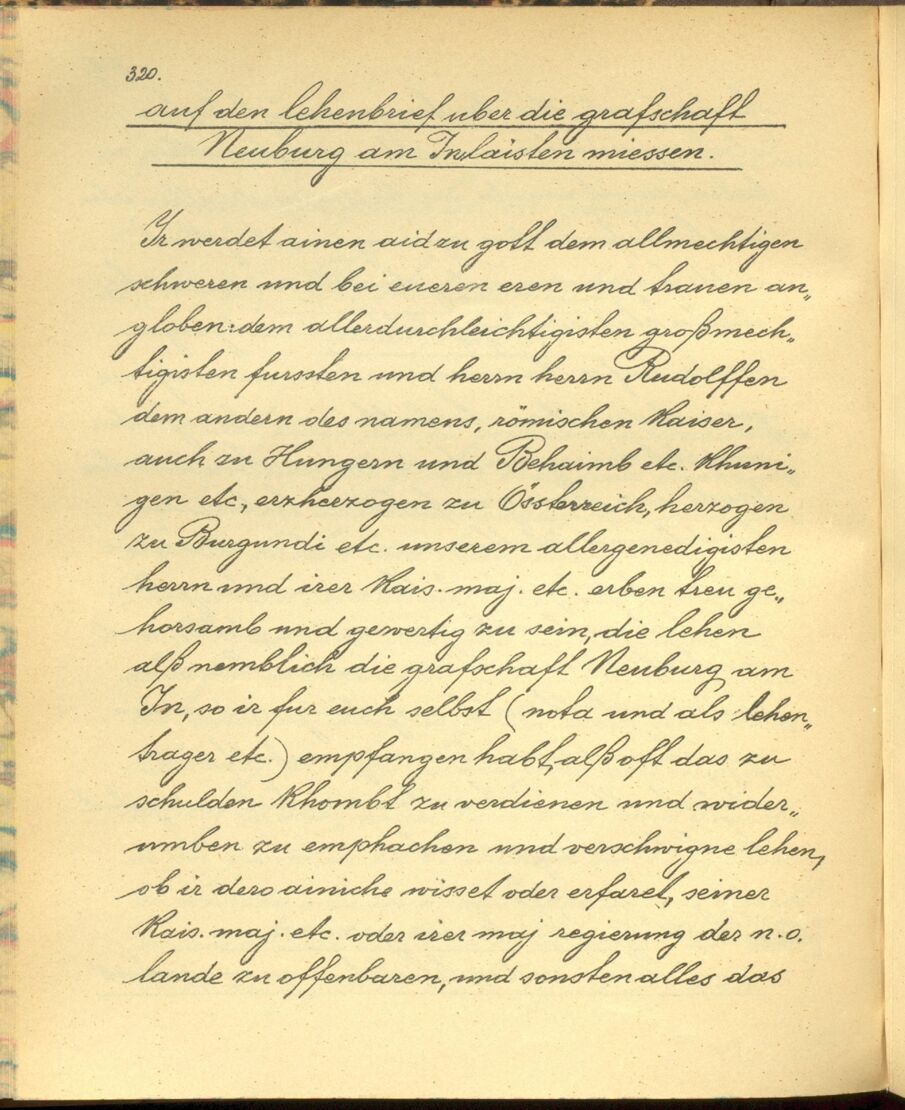 320.
auf den lehenbrief uber die grafschaft
Neuburg am In laisten miessen.
Ir werdet ainen aid zu gott dem allmechtigen
schweren und bei eueren eren und trauen an„
globen: dem allerdurchleichtigisten großmech„
tigisten furssten und herrn herrn Rudolffen
dem andern des namens, römischen Kaiser,
auch zu Hungern und Behaimb etc. Khuni„
gen etc, erzherzogen zu Össterreich, herzogen
zu Burgundi etc. unserem allergenedigisten
herrn und irer Kais. maj. etc. erben treu ge„
horsamb und gewertig zu sein, die lehen
alß nemblich die grafschaft Neuburg am
In, so ir fur euch selbst (nota und als lehen„
trager etc.) empfangen habt, alß oft das zu
schulden Khombt zu verdienen und wider„
umben zu emphachen und verschwigne lehen,
ob ir dero ainiche wisset oder erfaret, seiner
Kais. maj. etc. oder irer maj regierung der n.o.
lande zu offenbaren, und sonsten alles das